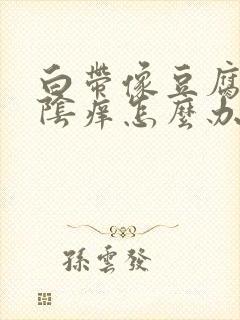 白帶像豆腐
陰癢怎麼办
孫雲發